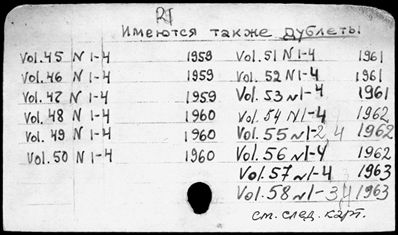 Имеются также дублеты
Vol.45 N 1-4 1959
Vol.46 N 1-4 1959
Vol.47 N 1-4 1959
Vol.48 N 1-4 1960
Vol.49 N 1-4 1960
Vol.50 N 1-4 1960
Vol.51 N 1-4 1961
Vol.52 N 1-4 1961
Vol.53 N 1-4 1961
Vol.54 N 1-4 1962
Vol.55 N 1-2,4 1962
Vol.56 N 1-4 1962
Vol.57 N 1-4 1963
Vol.58 N 1-3,4 1963
см. след. карт.